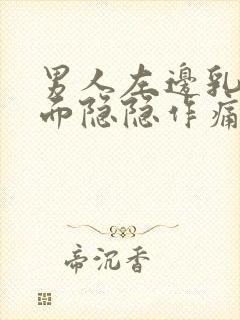 男人左邊乳
而隐隐作痛
帝沉香